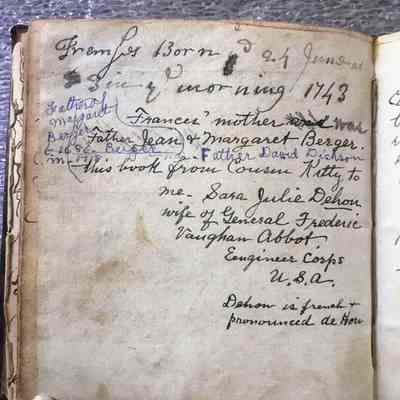 Born 24 June
morning 1743
Father of
Margaret
Berger
Frances' mother and was
Father Jean & Margaret Berger.
Berger Father David Dickson
this book from Cousin Kitty to
me - Sara Julie Dehon
wife of General Frederic
Vaughan Abbot
Eengineer Corps
U.S.A.
Dehon is french &
pronounced de Hon